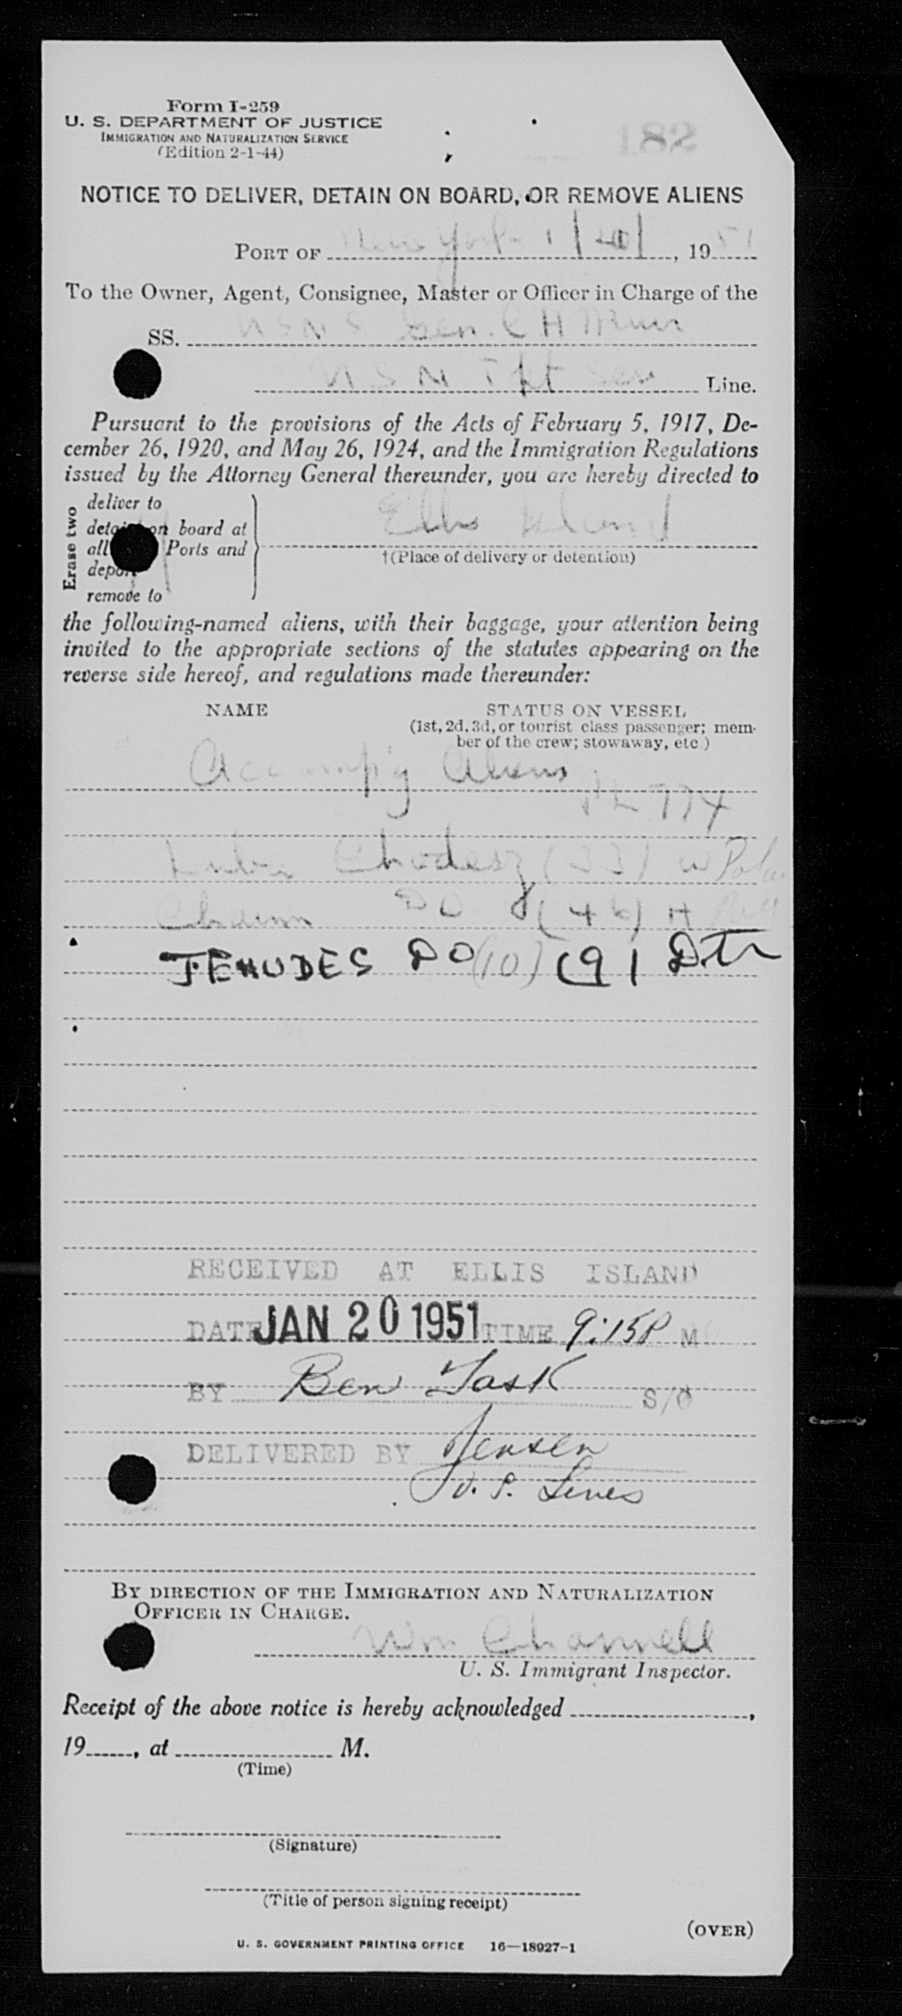 182
Form I-259
U. S. DEPARTMENT OF JUSTICE
IMMIGRATION AND NATURALIZATION SERVICE
(Edition 2-1-44)
NOTICE TO DELIVER, DETAIN ON BOARD, OR REMOVE ALIENS
PORT OF New York 1/20/, 19 51
To the Owner, Agent, Consignee, Master or Officer in Charge of the
SS. USNS Gen. C H Muir
Line.
Pursuant to the provisions of the Acts of February 5, 1917, De-
cember 26, 1920, and May 26, 1924, and the Immigration Regulations
issued by the Attorney General thereunder, you are hereby directed to
Erase two
deliver to
detain on board at
all Ports and
deport
remove to
Ellis Island
†(Place of delivery or detention)
the following-named aliens, with their baggage, your attention being
invited to the appropriate sections of the statutes appearing on the
reverse side hereof, and regulations made thereunder:
NAME STATUS ON VESSEL
(1st, 2d, 3d, or tourist class passenger; mem-
ber of the crew; stowaway, etc.)
Accompig Aliens
774
Chodesz (33) W
DO (46) H
JEHUDES DO (10) (9) Dtr
RECEIVED AT ELLIS ISLAND
DATE JAN 20 1951 TIME 9:15P M
BY Ben Task S/O
DELIVERED BY Jensen
U. S. Lines
BY DIRECTION OF THE IMMIGRATION AND NATURALIZATION
OFFICER IN CHARGE.
Wm Channell
U. S. Immigrant Inspector.
Receipt of the above notice is hereby acknowledged ,
19 , at M.
(Time)
(Signature)
(Title of person signing receipt)
(OVER)
U. S. GOVERNMENT PRINTING OFFICE 16—18927-1